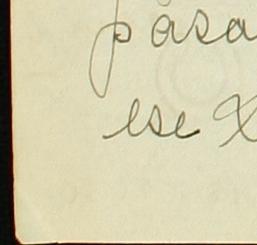 pasa
ese